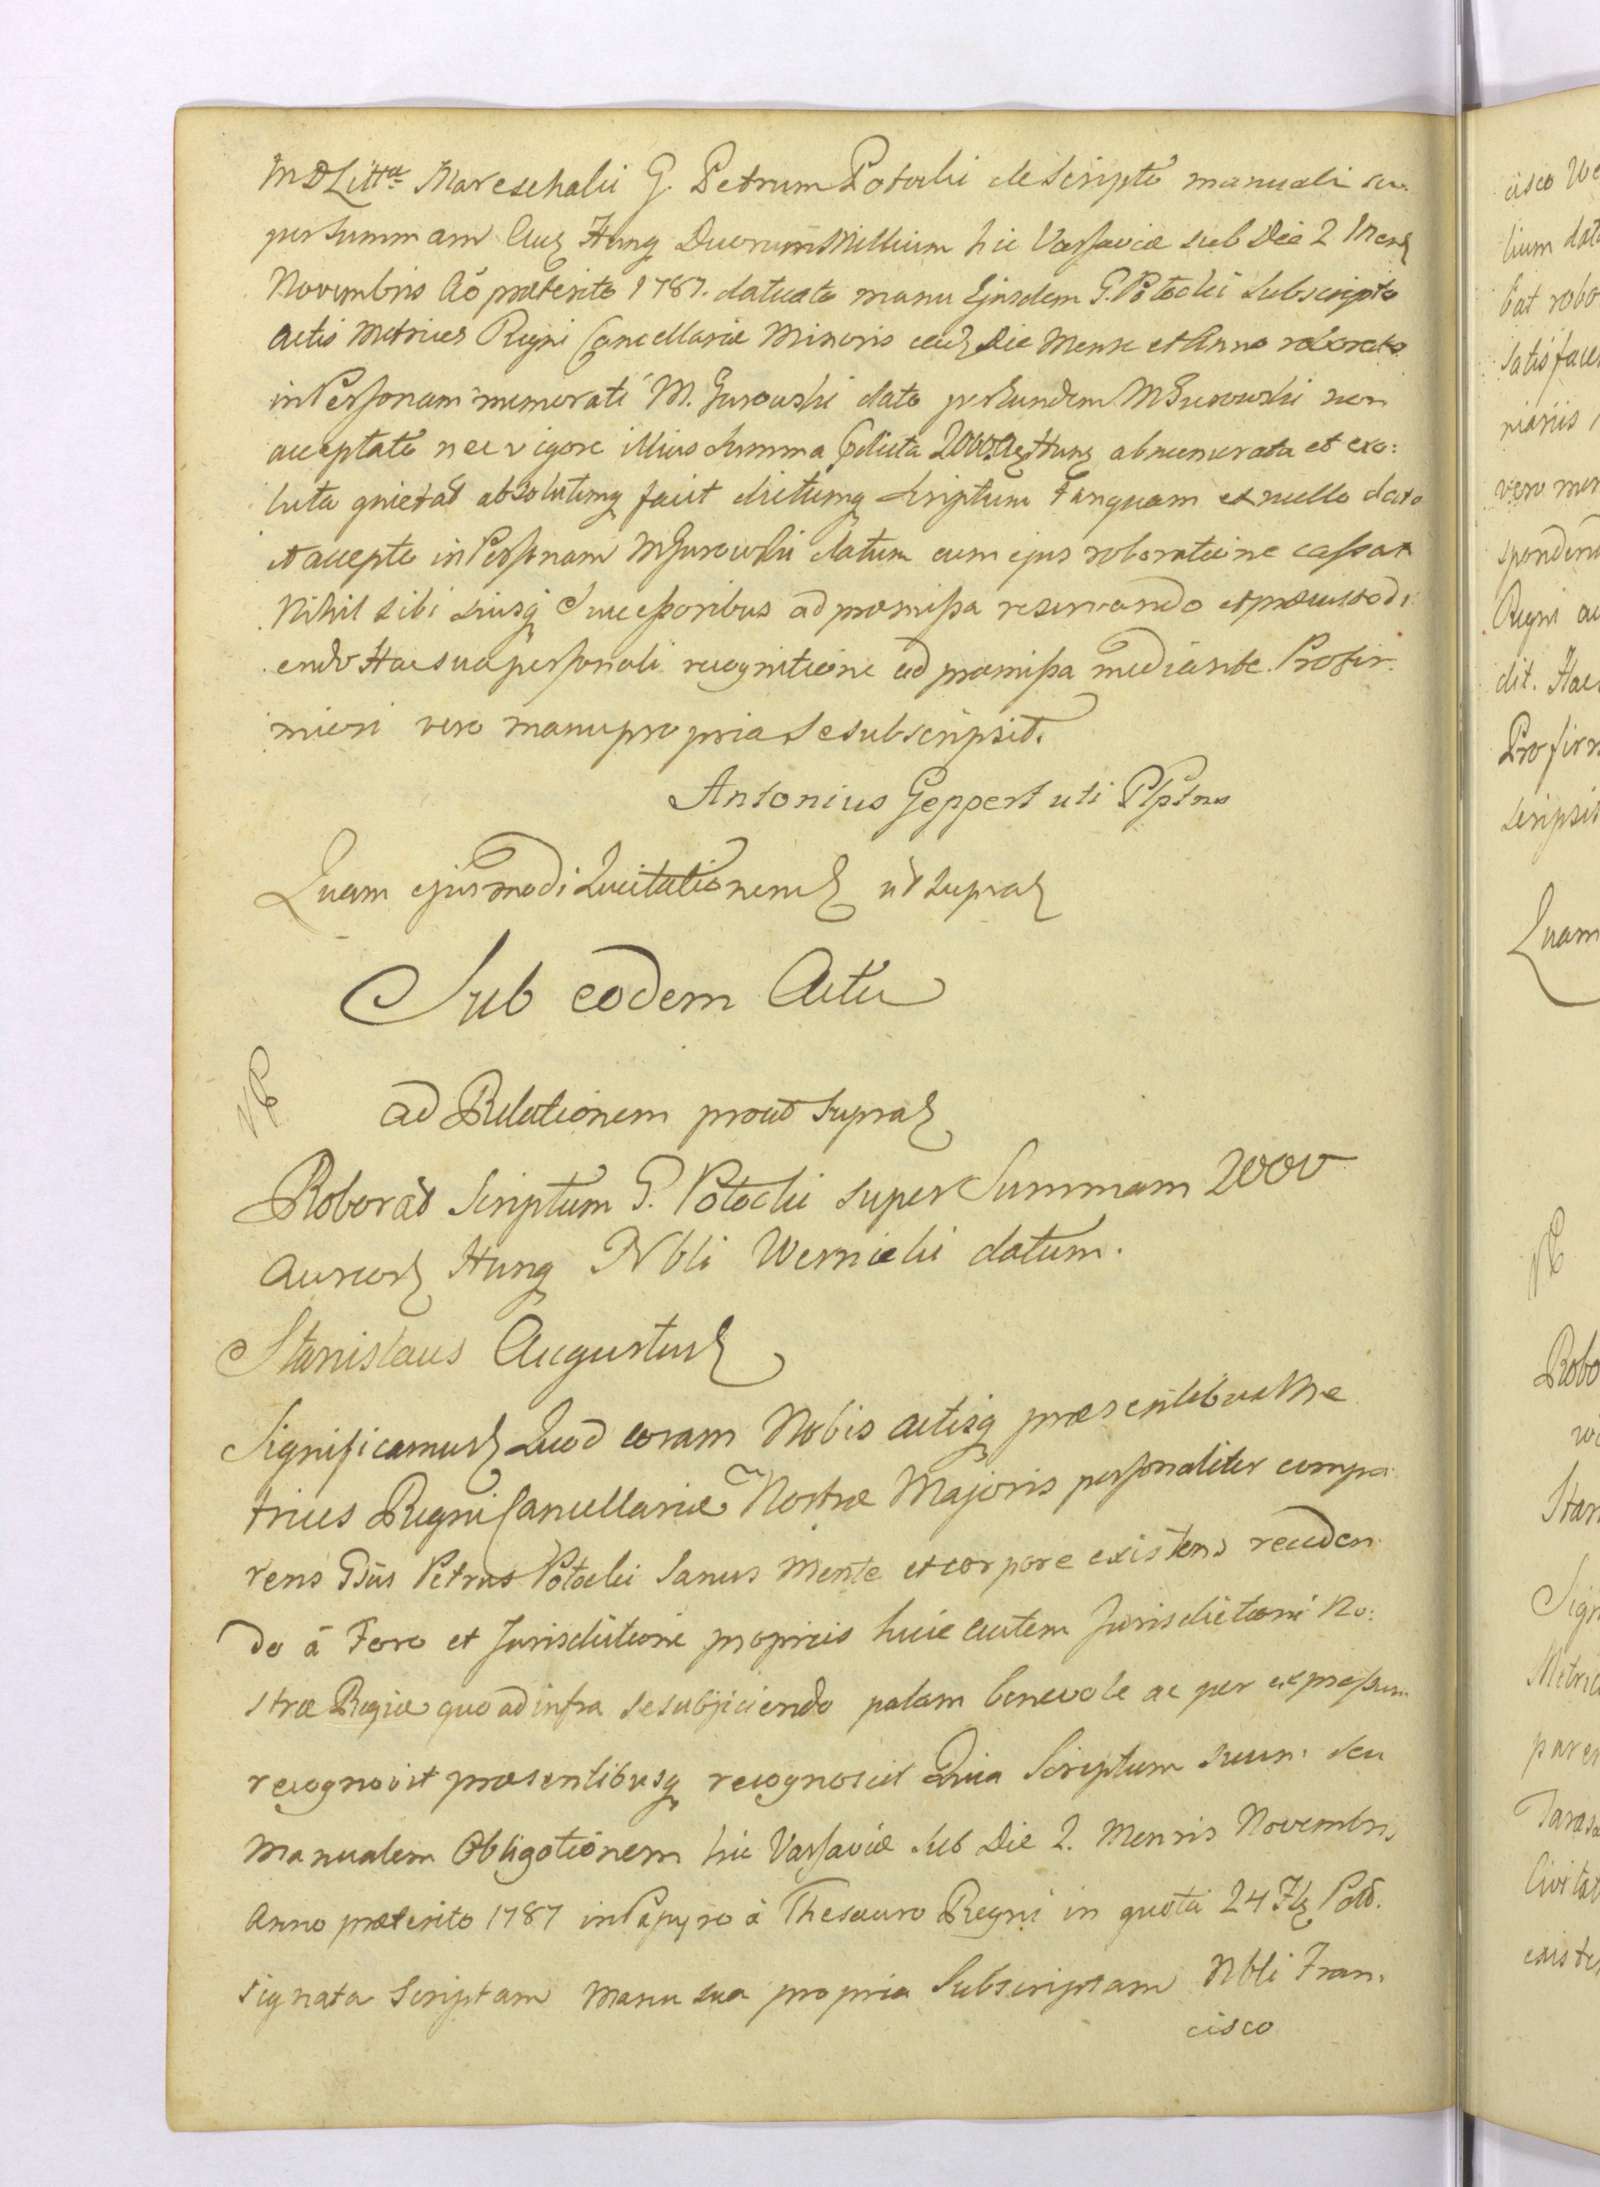 MDLittæ Mareschalii G. Petrum Potocki de Scripto manuali su-
per Summam Aur Hung Duorum Millium hic Varsaviæ sub Die 2 Mens
Novembris Ao præterito 1787. datuato manu Ejusdem G. Potocki Subscripto
Actis Metrices Regni Cancellariæ Minoris Die Mense et Anno roborato
in Personam memorati M. Gurowski dato per Eundem MGurowski non
acceptato nec vigore illius Summa 2000 Hung abnumerata et exo:
luta quietat absolutumq facit dictumq Scriptum tanquam ex nullo dato
et accepto in Personam MGurowski datum cum ejus roboratione cassat
Nihil sibi suisq Successoribus ad præmissa reservando et præcustodi
endo Hac sua personali recognitione ad præmissa mediante. Pro fir-
miori vero manu propria se subscripsit.
Antonius Geppert uti Plptns
Quam ejusmodi Quitationem ut supra
Sub eodem Actu
ad Relationem prout supra
Roborat Scriptum G. Potocki super Summam 2000
Aureor Hung Nbli Wernicki datum.
Stanislaus Augustus
Significamus Quod coram Nobis actisq præsentibus Me
trices Regni Cancellariæ Nostræ Majoris personaliter compa
rens Gsus Petrus Potocki Sanus mente et corpore existens receden
do à Foro et Jurisdictione propriis huic autem Jurisdictioni No:
stræ Regiæ quo ad infra se subjiciendo palam benevole ac per expressum
recognovit præsentibusq recognoscit Quia Scriptum suum seu
manualem Obligationem hic Varsaviæ sub Die 2. Mensis Novembris
Anno præterito 1787 in Papyro à Thesauro Regni in quota 24 Fl Pol.
signata Scriptam manu sua propria Subscriptam Nbli Fran-
cisco